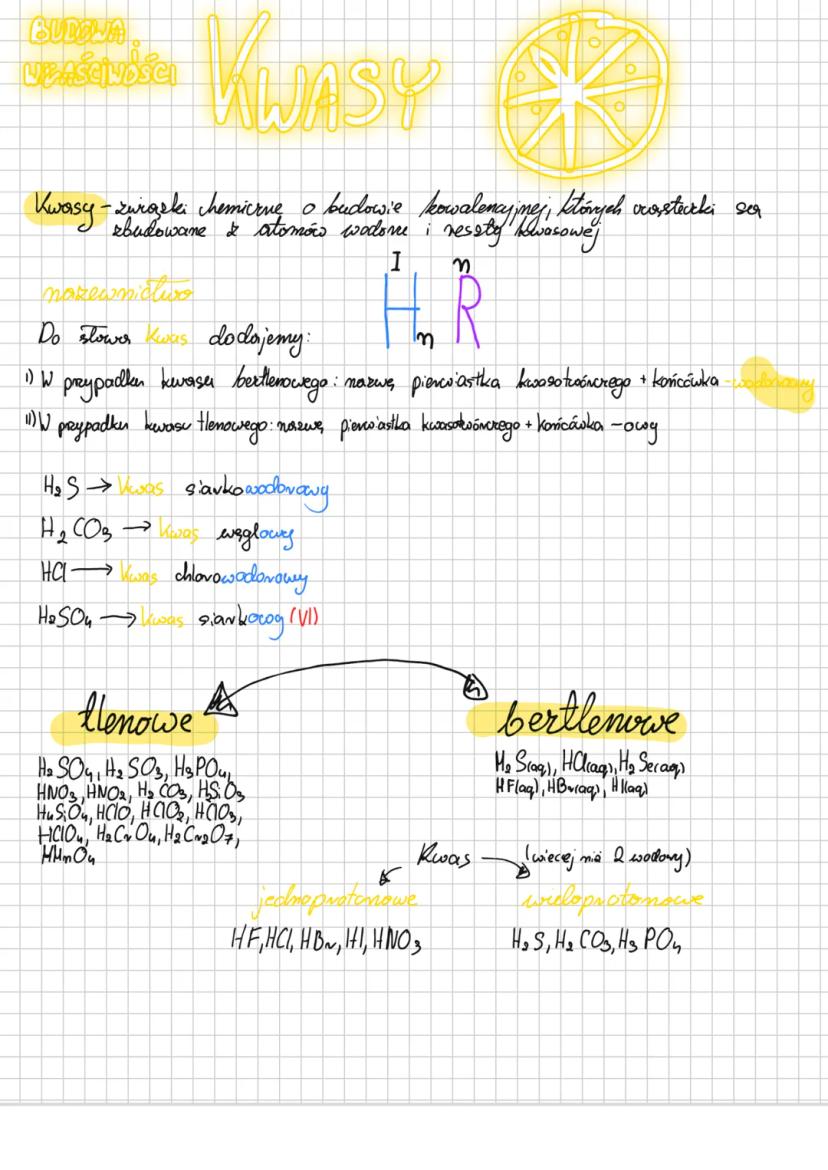 BUDOWA i
WŁAŚCIWOŚCI
KWASY
Kwasy - związki chemiczne o budowie kowalencyjnej, których cząsteczki są
zbudowane z atomów wodoru i reszty kwasowej
I n
HnR
nazewnictwo
Do słowa kwas dodajemy:
I) W przypadku kwasu beztlenowego: nazwę pierwiastka kwasotwórczego + końcówka -wodorowy
II) W przypadku kwasu tlenowego: nazwę pierwiastka kwasotwórczego + końcówka -owy
H2S → Kwas siarkowodorowy
H2CO3 → Kwas węglowy
HCl → Kwas chlorowodorowy
H2SO4 → Kwas siarkowy (VI)
tlenowe
H2SO4, H2SO3, H3PO4,
HNO3, HNO2, H2CO3, H2SiO3
H4SiO4, HClO, HClO2, HClO3,
HClO4, H2CrO4, H2Cr2O7,
HMnO4
beztlenowe
H2S(aq), HCl(aq), H2Se(aq)
HF(aq), HBr(aq), HI(aq)
Kwas
(więcej niż 2 wodory)
jednoprotonowe
HF, HCl, HBr, HI, HNO3
wieloprotonowe
H2S, H2CO3, H3PO4